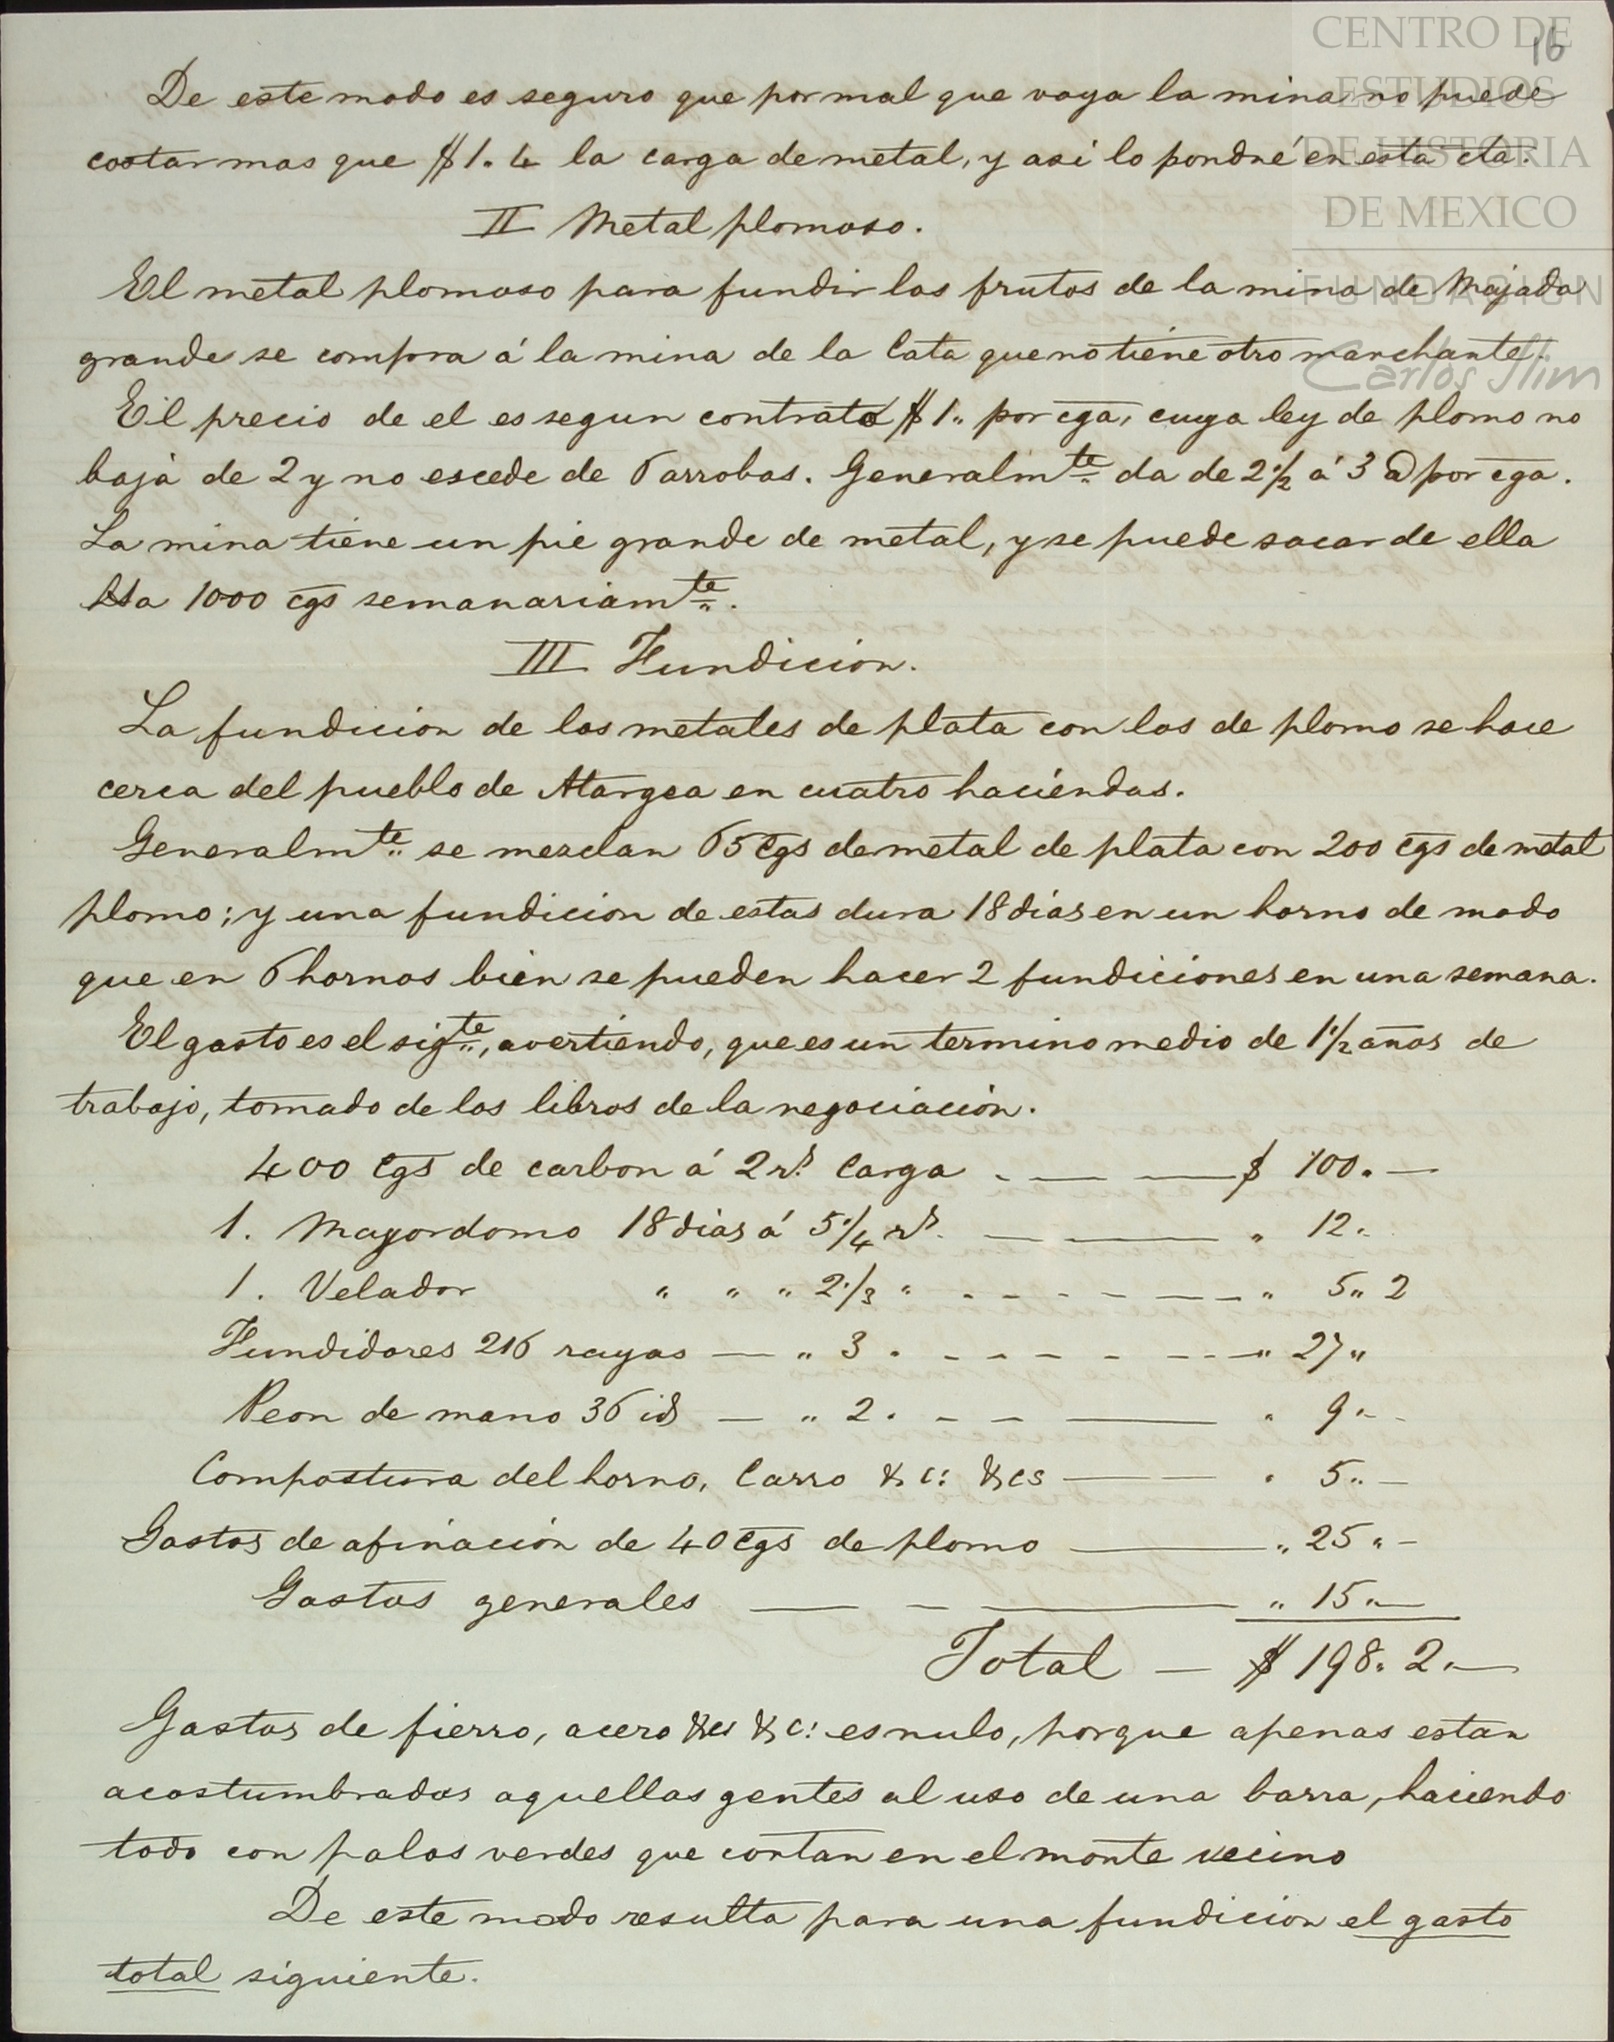 16
CENTRO DE
ESTUDIOS
DE HISTORIA
DE MEXICO
FUNDACIÓN
Carlos Slim
De este modo es seguro que por mal que vaya la mina no puede
costar mas que $1. 4 la carga de metal, y asi lo pondré en esta cta.
II Metal plomoso.
El metal plomoso para fundir los frutos de la mina de Majada
grande se compra á la mina de la Cata que no tiene otro marchante.
El precio de el es segun contrato $1.. por cga, cuya ley de plomo no
baja de 2 y no escede de 6 arrobas. Generalmte da de 2 1/2 á 3 @ por cga.
La mina tiene un pie grande de metal, y se puede sacar de ella
hta 1000 cgs semanariamte.
III Fundicion.
La fundicion de los metales de plata con los de plomo se hace
cerca del pueblo de Atargea en cuatro haciendas.
Generalmte se mezclan 65 cgs de metal de plata con 200 cgs de metal
plomo; y una fundicion de estas dura 18 dias en un horno de modo
que en 6 hornos bien se pueden hacer 2 fundiciones en una semana.
El gasto es el sigte, avertiendo, que es un termino medio de 1 1/2 años de
trabajo, tomado de los libros de la negociacion.
400 cgs de carbon á 2 rs. Carga . — — $ 100. —
1. Mayordomo 18 dias á 5 1/4 rs. — — " 12.
1. Velador " " " 2 1/3 " - - - - — " 5" 2
Fundidores 216 rayas — " 3 . - - - - - — " 27 "
Peon de mano 36 id — " 2 . - - — " 9 " -
Compostura del horno, Carro &c: &cs — " 5.. —
Gastos de afinacion de 40 cgs de plomo — " 25 " -
Gastos generales — - — " 15 " —
Total — $ 198. 2. —
Gastos de fierro, acero &cs &c: es nulo, porque apenas estan
acostumbrados aquellas gentes al uso de una barra, haciendo
todo con palos verdes que cortan en el monte vecino
De este modo resulta para una fundicion el gasto
total siguiente.